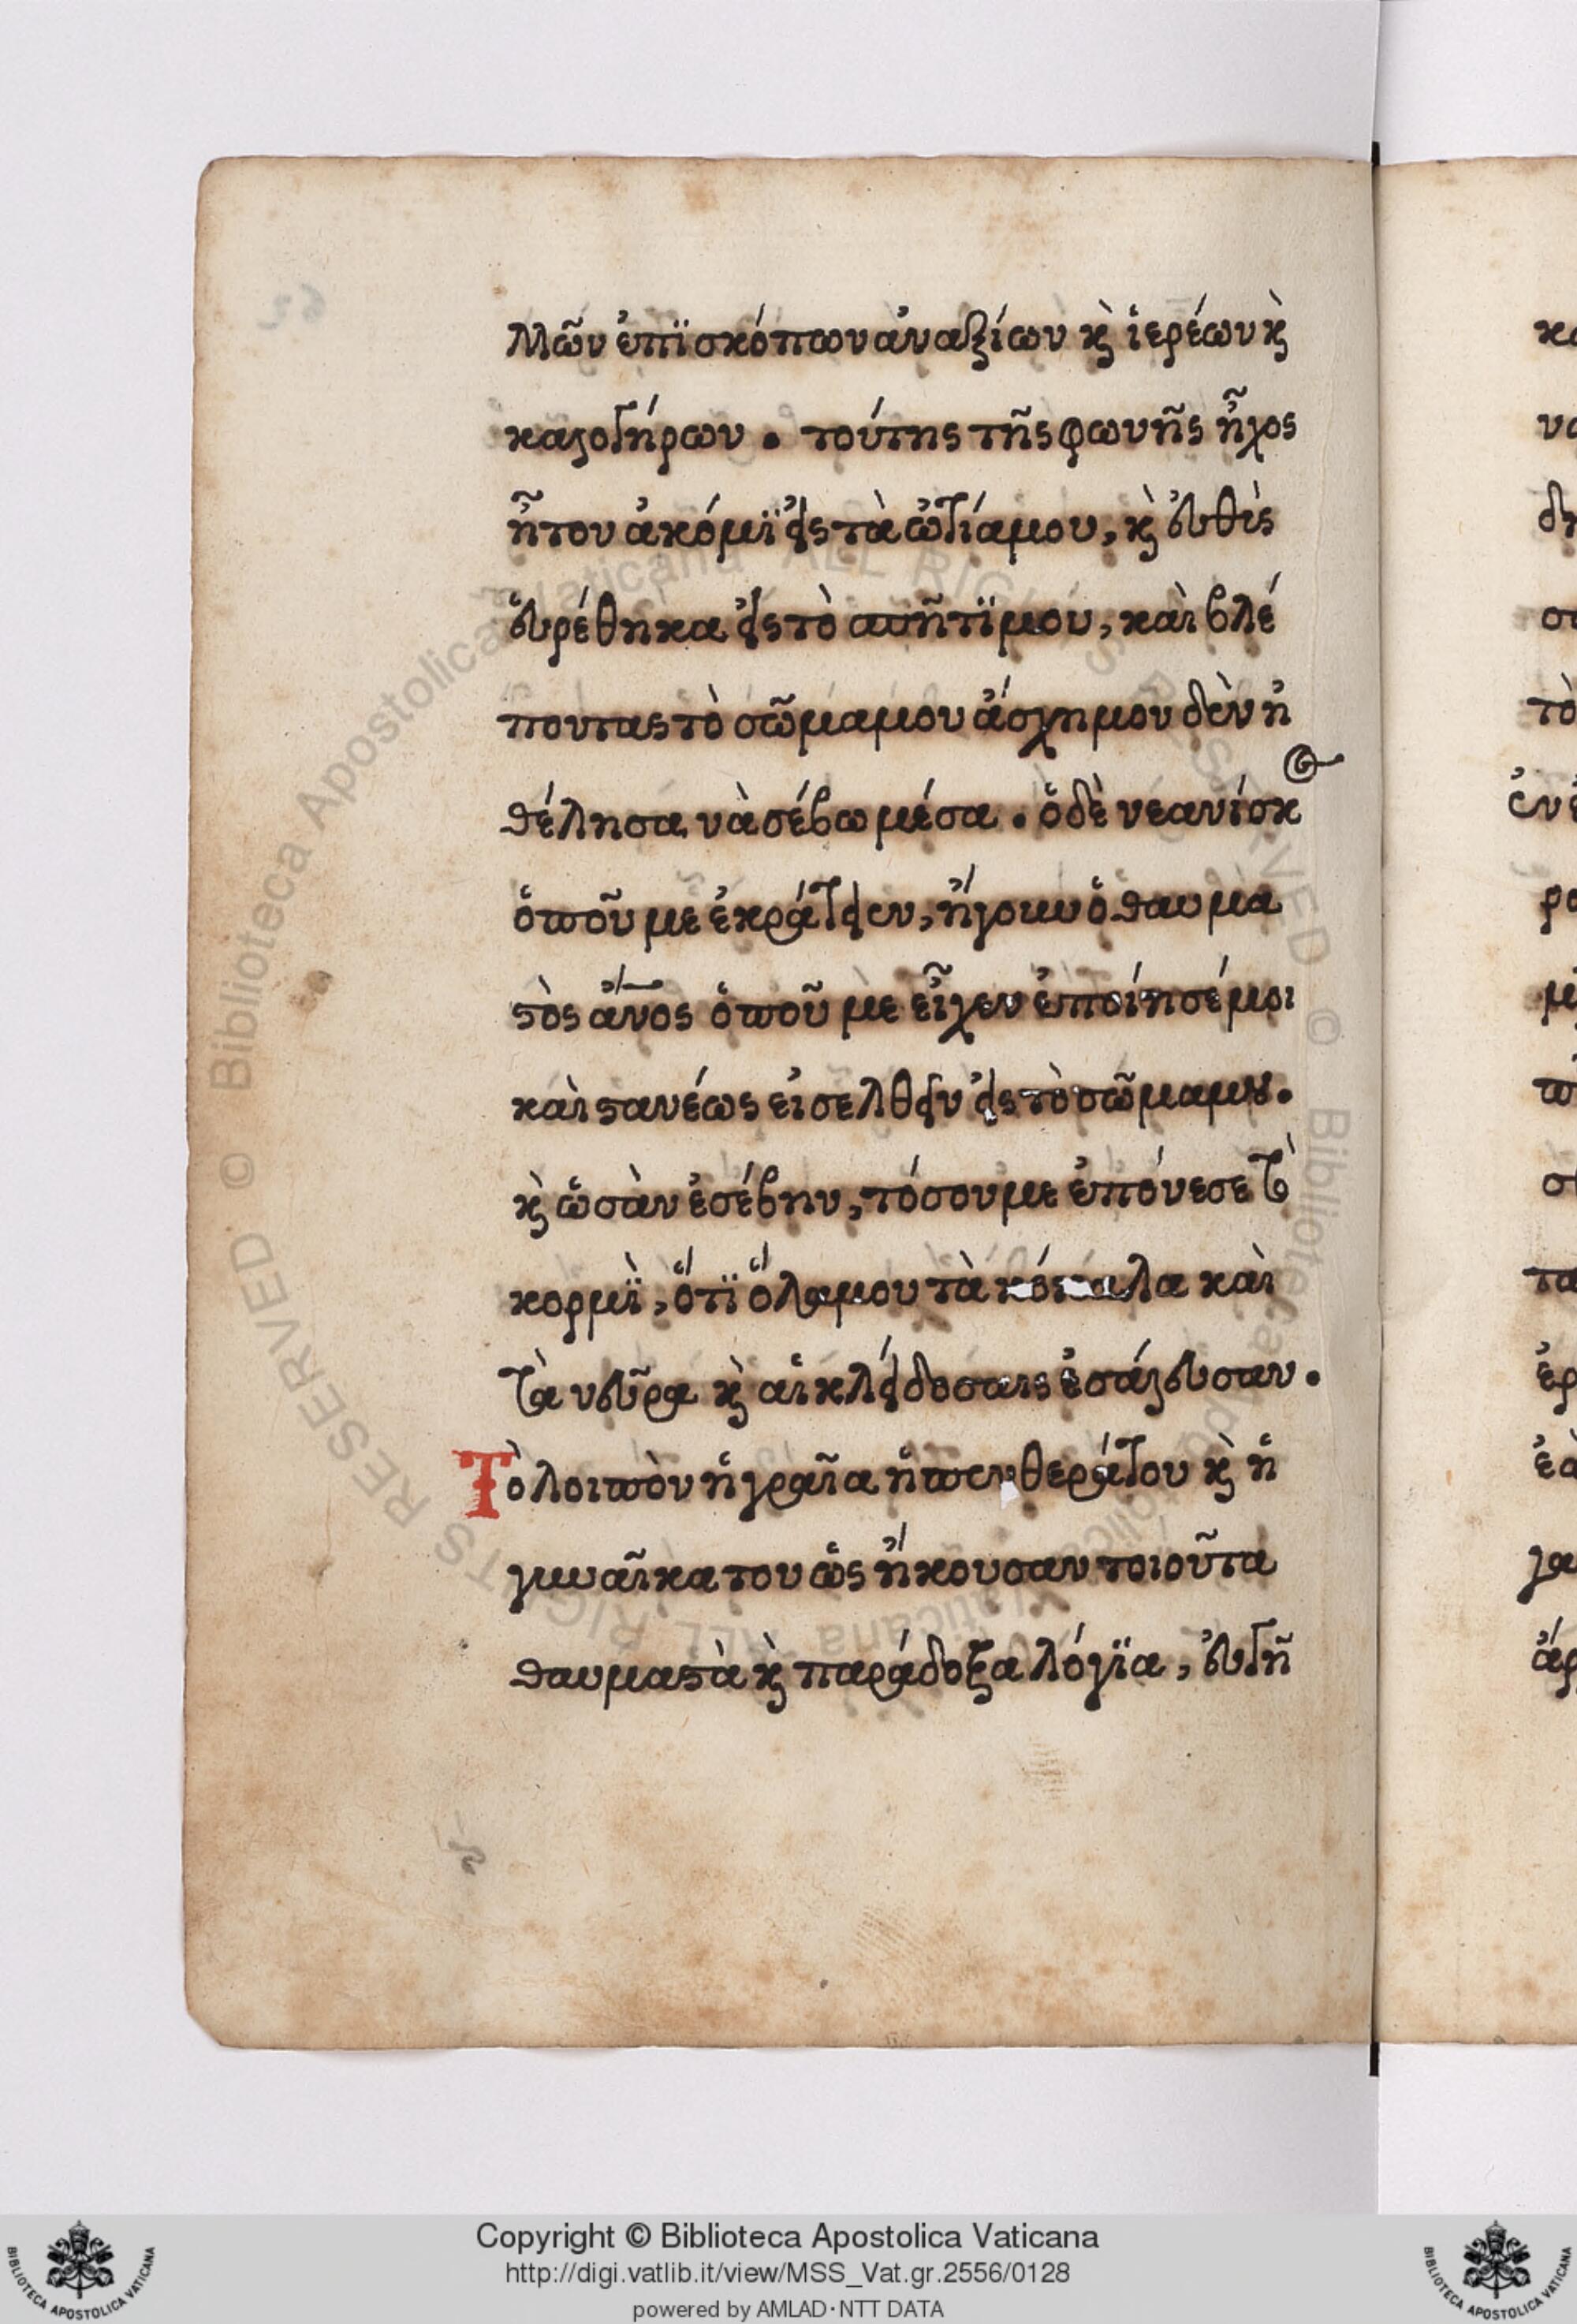 λλῶν ἐπϊσκόπων ἀναξίων κ̀ ἱερέων κ̀
καλογήρων . τούτης τῆς φωνῆς ἦχος
ἦτον ἀκόμϊ εἰς τὰ ὠτία μου, κ̀ εὐθὶς
εὑρέθηκα εἰς τὸ σπῆτϊ μου, καὶ βλέ
πουτας τὸ σῶμα μου ἄσχημον δὲν ἠ
θέλησα νὰ σέβω μέσα . ὁ δὲ νεανίσκος
ὁποῦ με ἐκράτειεν, ἤγουν ὁ θαυμα
στὸς ἄνος ὁποῦ με εἶχεν ἐποίησέ μοι
καὶ στανέως εἰσελθεῖν εἰς τὸ σῶμα μου.
κ̀ ὡσὰν ἐσέβην, τόσον με ἐπόνεσε τὸ
κορμϊ, ὅτϊ ὅλα μου τὰ κόκαλα καὶ
τὰ νεῦρα κ̀ αἱ κλείδοσαις ἐσάλευσαν.
Τὸ λοιπὸν ἡ γραῖα ἡ πενθερά του κ̀ ἡ
γυναῖκα του ὡς ἤκουσαν τοιοῦτα
θαυμαστὰ κ̀ παράδοξα λόγϊα, εὐγῆ
Copyright © Biblioteca Apostolica Vaticana
http://digi.vatlib.it/view/MSS_Vat.gr.2556/0128
powered by AMLAD·NTT DATA